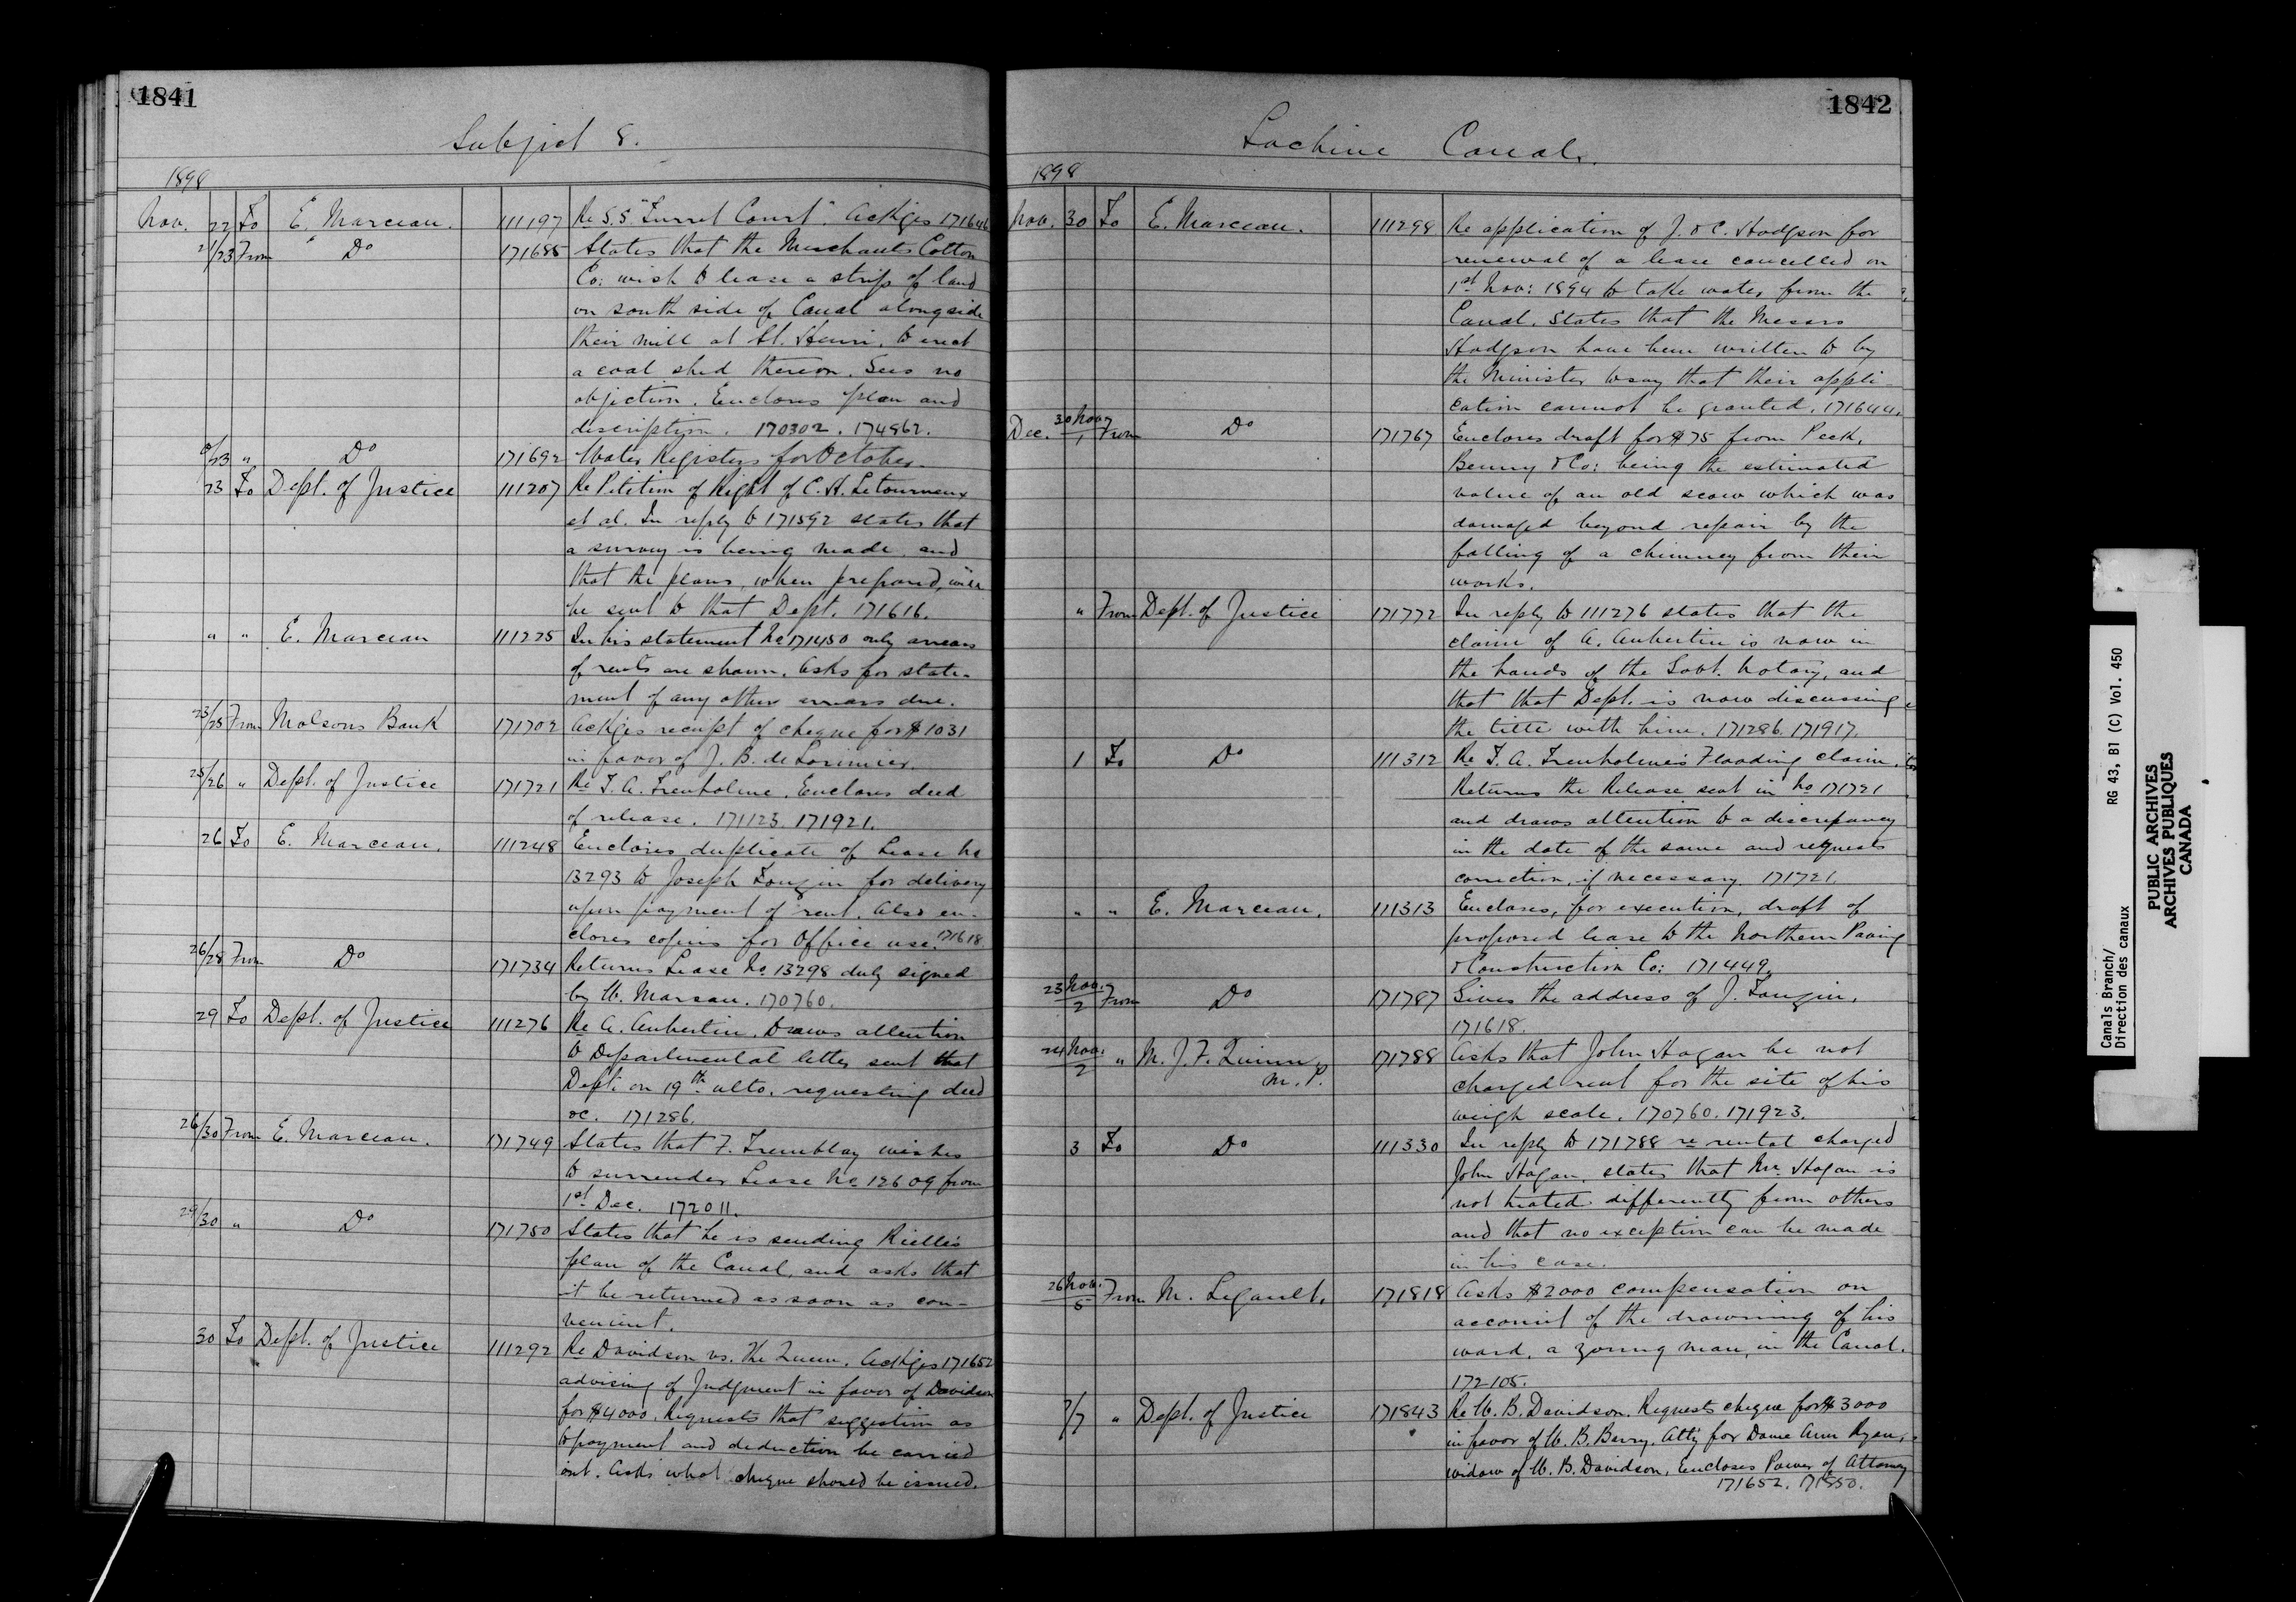 1841
Subject 8.
1898
Nov. 22 To E. Marceau. 111197 Re S.S. "Turret Court". Ackges 171646
21/23 From Do 171685 States that the Merchants Cotton
Co: wish to lease a strip of land
on south side of Canal alongside
their mill at St. Henri, to erect
a coal shed thereon. Sees no
objection. Encloses plan and
description. 170302. 174862.
/23 " Do 171692 Water Registers for October.
23 To Dept. of Justice 111207 Re Petition of Right of C. H. Letourneux
et al. In reply to 171592 states that
a survey is being made and
that the plans, when prepared, will
be sent to that Dept. 171616.
" " E. Marceau 111225 In his statement No 171450 only arrears
of rents are shown. Asks for state-
ment of any other arrears due.
23/25 From Molsons Bank 171702 Ackges receipt of cheque for $1031
in favor of J. B. de Lorimier.
25/26 " Dept. of Justice 171721 Re T. A. Trenholme. Encloses deed
of release. 171123. 171921.
26 To E. Marceau. 111248 Encloses duplicate of Lease No
13293 to Joseph for delivery
upon payment of rent. Also en-
closes copies for Office use. 171618
26/28 From Do 171734 Returns Lease No. 13298 duly signed
by W. Marsan. 170760.
29 To Dept. of Justice 111276 Re A. Aubertin. Draws attention
to Departmental letter sent that
Dept. on 19th ulto. requesting deed
&c. 171286.
26/30 From E. Marceau. 171749 States that F. Tremblay wishes
to surrender Lease No 12609 from
1st Dec. 172011.
29/30 " Do 171750 States that he is sending Rielle's
plan of the Canal, and asks that
it be returned as soon as con-
venient.
30 To Dept. of Justice 111292 Re Davidson vs. The Queen. Ackges 171652
advising of Judgment in favor of Davidson
for $4000. Requests that suggestion as
to payment and deduction be carried
out. Asks what cheque should be issued.
1842
Lachine Canal.
1898
Nov. 30 To E. Marceau. 111298 Re application of J. & C. Hodgson for
renewal of a lease cancelled on
1st Nov: 1894 to take water from the
Canal. States that the Messrs
Hodgson have been written to by
the Minister to say that their appli-
cation cannot be granted. 171644.
Dec. 30 Nov/1 From Do 171767 Encloses draft for $75 from Peck,
Benny & Co: being the estimated
value of an old scow which was
damaged beyond repair by the
falling of a chimney from their
works.
" From Dept. of Justice 171772 In reply to 111276 states that the
claim of A. Aubertin is now in
the hands of the Govt. Notary, and
that that Dept. is now discussing
the title with him. 171286. 171917.
1 To Do 111312 Re T. A. Trenholme's Flooding claim.
Returns the Release sent in No 171721
and draws attention to a discrepancy
in the date of the same and requests
correction, if necessary. 171721.
" " E. Marceau. 111313 Encloses, for execution, draft of
proposed lease to the Northern Paving
& Construction Co: 171449.
23 Nov./2 From Do 171787 Gives the address of J.
171618.
24 Nov./2 " M. J. F. Quinn, 171788 Asks that John Hagan be not
M. P. charged rent for the site of his
weigh scale. 170760. 171923.
3 To Do 111330 In reply to 171788 re rental charged
John Hagan, states that Mr. Hagan is
not treated differently from others
and that no exception can be made
in his case.
26 Nov./5 From M. Legault. 171818 Asks $2000 compensation on
account of the drowning of his
ward, a young man, in the Canal.
172105.
/7 " Dept. of Justice 171843 Re W. B. Davidson. Requests cheque for $3000
in favor of W. B. Berry, Atty for Dame Ann Ryan,
widow of W. B. Davidson. Encloses Power of Attorney
171652. 171850.
Canals Branch/
Direction des canaux
RG 43, B1 (C) Vol. 450
PUBLIC ARCHIVES
ARCHIVES PUBLIQUES
CANADA